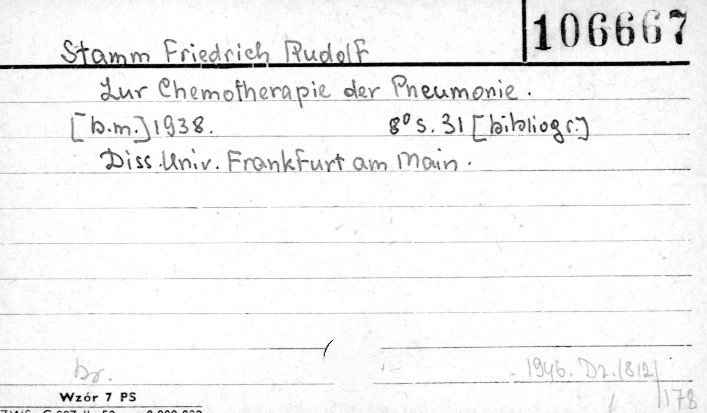 106667
Stamm Friedrich Rudolf
Zur Chemotherapie der Pneumonie.
[b.m.] 1938. 8° s. 31 [bibliogr.]
Diss. Univ. Frankfurt am Main.
br. 1946. Dz. /812/
178
Wzór 7 PS